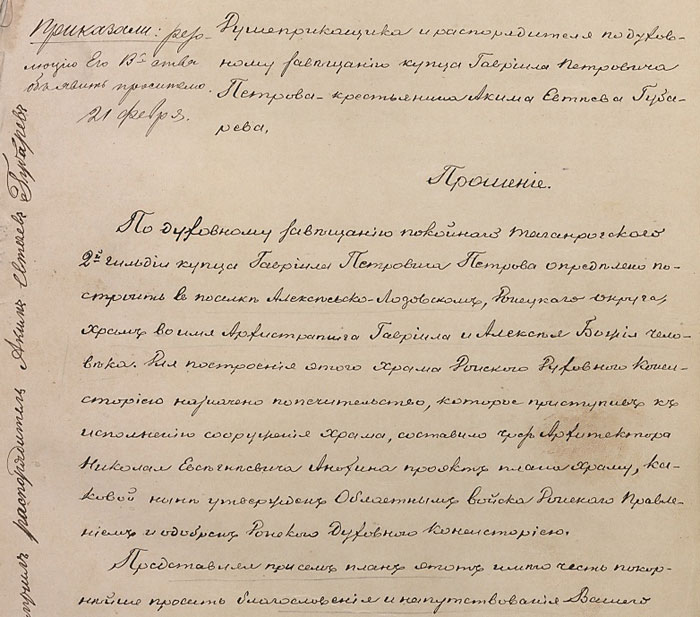 Приказали: резо-
люцію Его Вᵒ-ства
объявить просителю.
21 февря.
Душеприкащика и распорядителя по духов-
ному завѣщанію купца Гавріила Петровича
Петрова - крестьянина Акима Евтіева Губа-
рева,
Прошеніе.
По духовному завѣщанію покойнаго таганрогскаго
2й гильдіи купца Гавріила Петровича Петрова опредѣлено по-
строить въ поселкѣ Алексѣевско-Лозовскомъ, Донецкаго округа,
храмъ во имя Архистратига Гавріила и Алексѣя Божія чело-
вѣка. Для построенія этого храма Донскою Духовною Конси-
сторіею назначено попечительство, которое приступивъ къ
исполненію сооруженія храма, составило чрез Архитектора
Николая Евгеніевича Анохина проэктъ плана храму, ка-
ковой нынѣ утвержденъ Областнымъ войска Донскаго Правле-
ніемъ и одобренъ Донскою Духовною Консисторіею.
Представляя при семъ планъ этотъ имѣю честь покор-
нѣйше просить благословенія и напутствованія Вашего
распорядитель Акимъ Евтіевъ Губаревъ